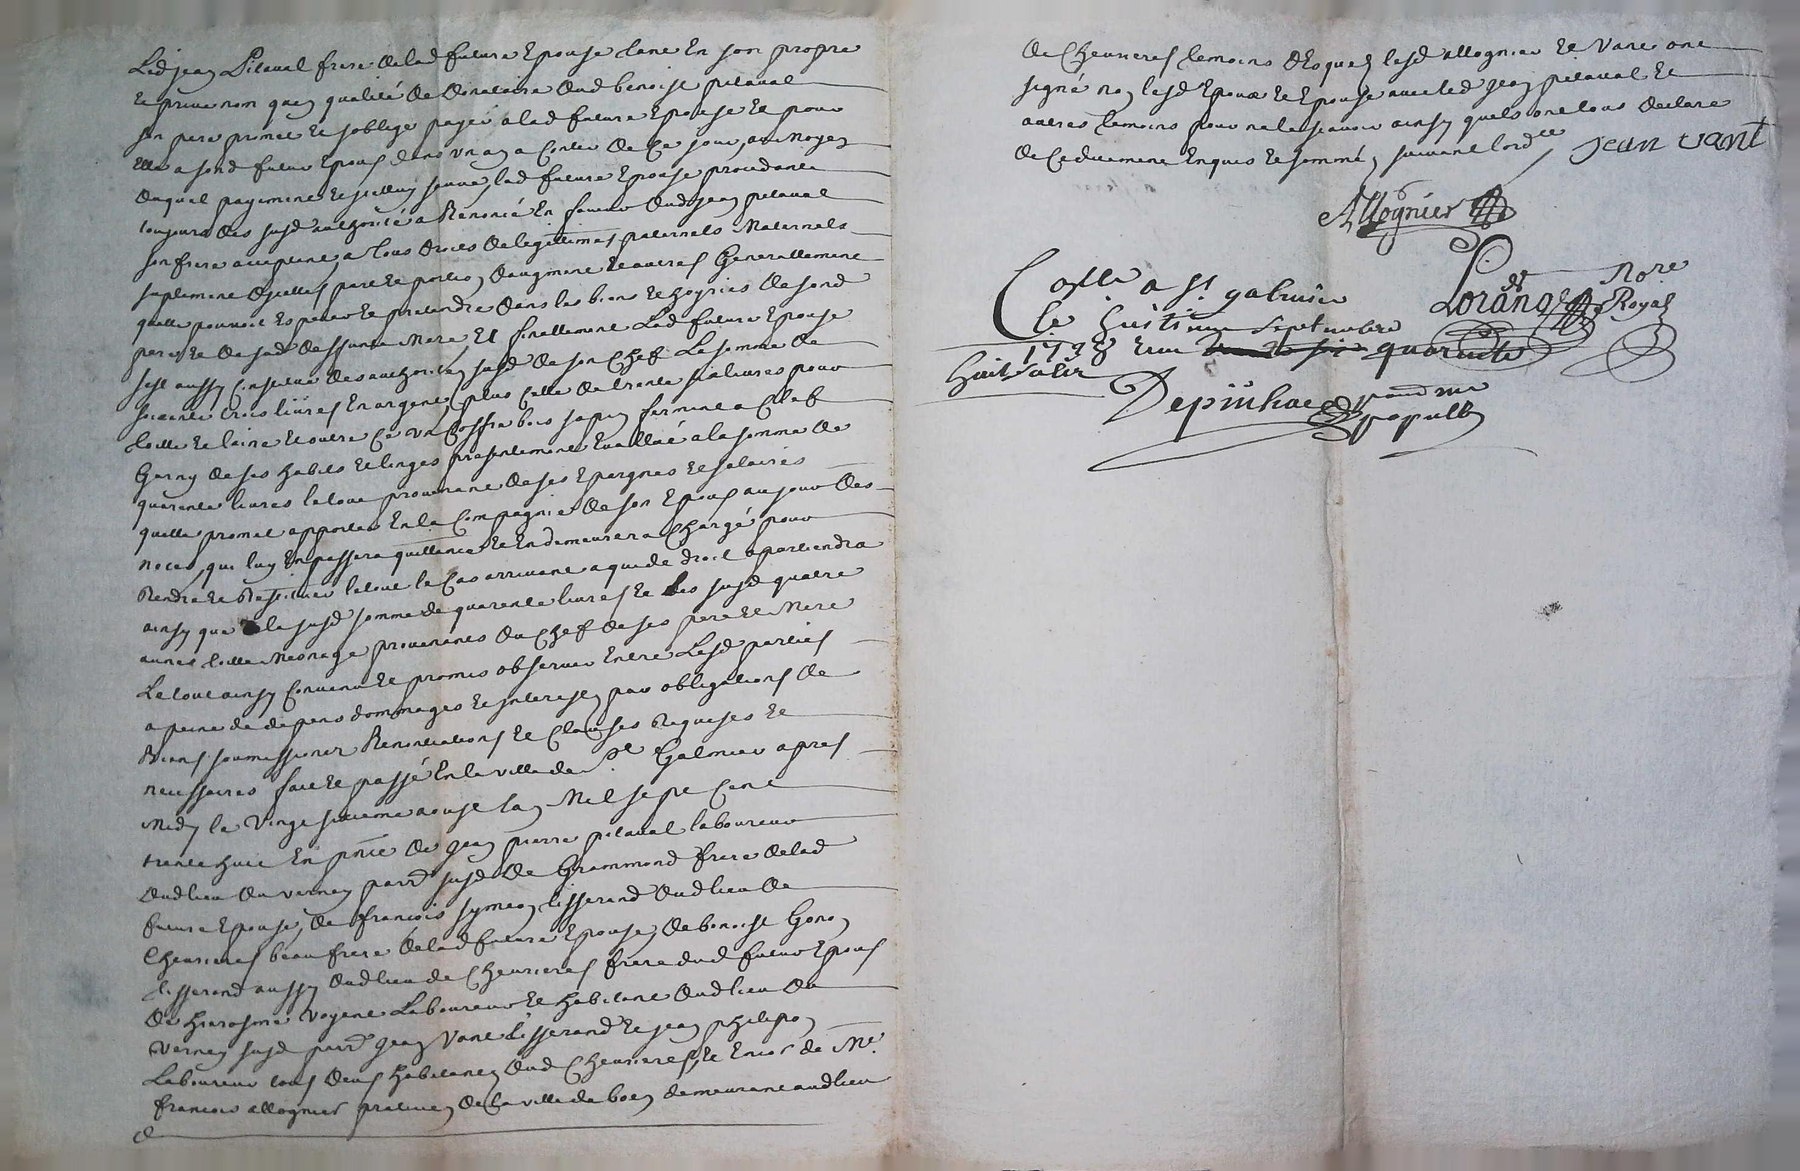 Led jean Pitaval frere de lad future Epouse tant En son propre
Et privé nom qu'en qualité de donataire dud benoist pitaval
son pere promet Et soblige payer a lad future Epouse Et pour
Elle a sond futur Epoux dans un an a Conter de Ce jour, au moyen
duquel payement Et jcelluy sauve, lad future Epouse procedante
toujours des susd authorité a Renoncé En faveur dud jean pitaval
son frere acceptent, a tous droits de legittimes paternels maternels
suplement d'jcelles part Et portion d'augment Et autres Generallement
quelle pouvoit Esperer Et pretendre dans les biens Et hoyries de sond
pere Et de sad deffunte mere Et finallement Lad future Epouse
sest aussy Constitué des authorités susd de son Chef La somme de
soixante trois livres En argent, plus Celle de trente six livres pour
toille Et laine Et outre Ce un Coffre bois sapin fermant a Clef
Garny de ses habits Et linges presentement Evallué a la somme de
quarente livres le tout provenant de ses Epargnes Et salaires
quelle promet apporter En la Compagnie de son Epoux au jour des
noces, qui luy En passera quittance Et En demeurera Chargé pour
Rendre Et Restituer letout le Cas arrivant a qui de droit apartiendra
ainsy que la susd somme de quarente livres Et les susd quatre
aunes toille menage provenants du Chef de ses pere Et mere
Le tout ainsy Convenu Et promis observer Entre Lesd parties
a peine de depens dommages Et interests par obligations de
Biens soumissions Renonciations Et Clauses Requises Et
necessaires fait Et passé En la ville de St Galmier apres
midy le vingt sixieme aoust lan mil sept Cent
trente huit En pnce de jean pierre pitaval laboureur
dud lieu du verney parr susd de Grammond frere de lad
future Epouse, de francois symeon tisserand dud lieu de
Chevrieres beau frere de lad future Epouse, de benoist Gonon
tisserand aussy dud lieu de Chevrieres frere dud futur Epoux
de hierosme voyent Laboureur Et habitant dud lieu du
verney susd parr jean vant tisserand Et jean philipon
Laboureur tous deux habitants dud Chevrieres, Et Encor de Me
francois allognier praticien de la ville de boen demeurant aud lieu
de Chevrieres temoins desquels lesd allognier Et vant ont
signé non lesd Epoux Et Epouse avec led jean pitaval Et
autres temoins pour ne le scavoir ainsy quils ont tous declaré
de Ce duement Enquis Et sommés suivant lord
jean vant
Allognier
Lorange Nore Royal
Collé a St galmier
le huitieme septembre
1738 Reçu quarente
huit sols
Depinhac